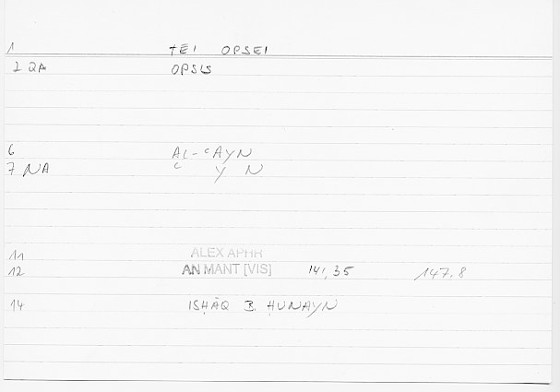 1 TĒI OPSEI
2 QA OPSIS
6 AL-ʿAYN
7 NA ʿ Y N
11 ALEX APHR
12 AN MANT [VIS] 141,35 147.8
14 ISḤĀQ B. ḤUNAYN